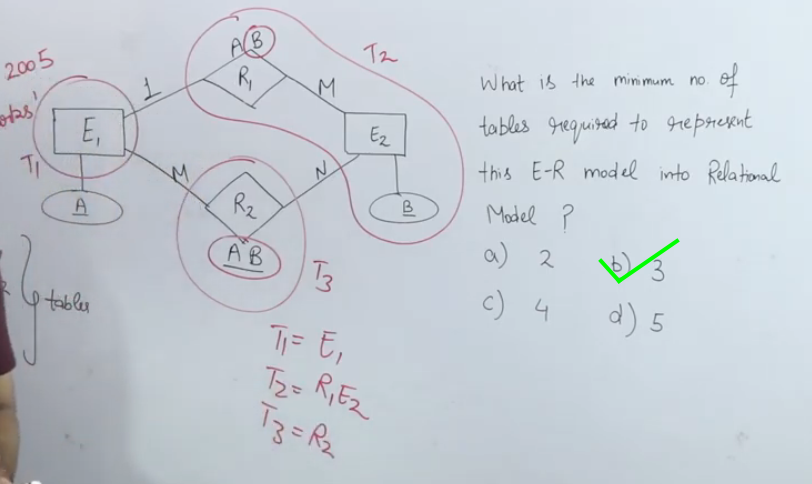 2005
T1
E1
A
1
A B
R1
M
T2
E2
B
M
R2
N
A B
T3
tables
T1 = E1
T2 = R1E2
T3 = R2
What is the minimum no. of
tables required to represent
this E-R model into Relational
Model ?
a) 2
b) 3
c) 4
d) 5